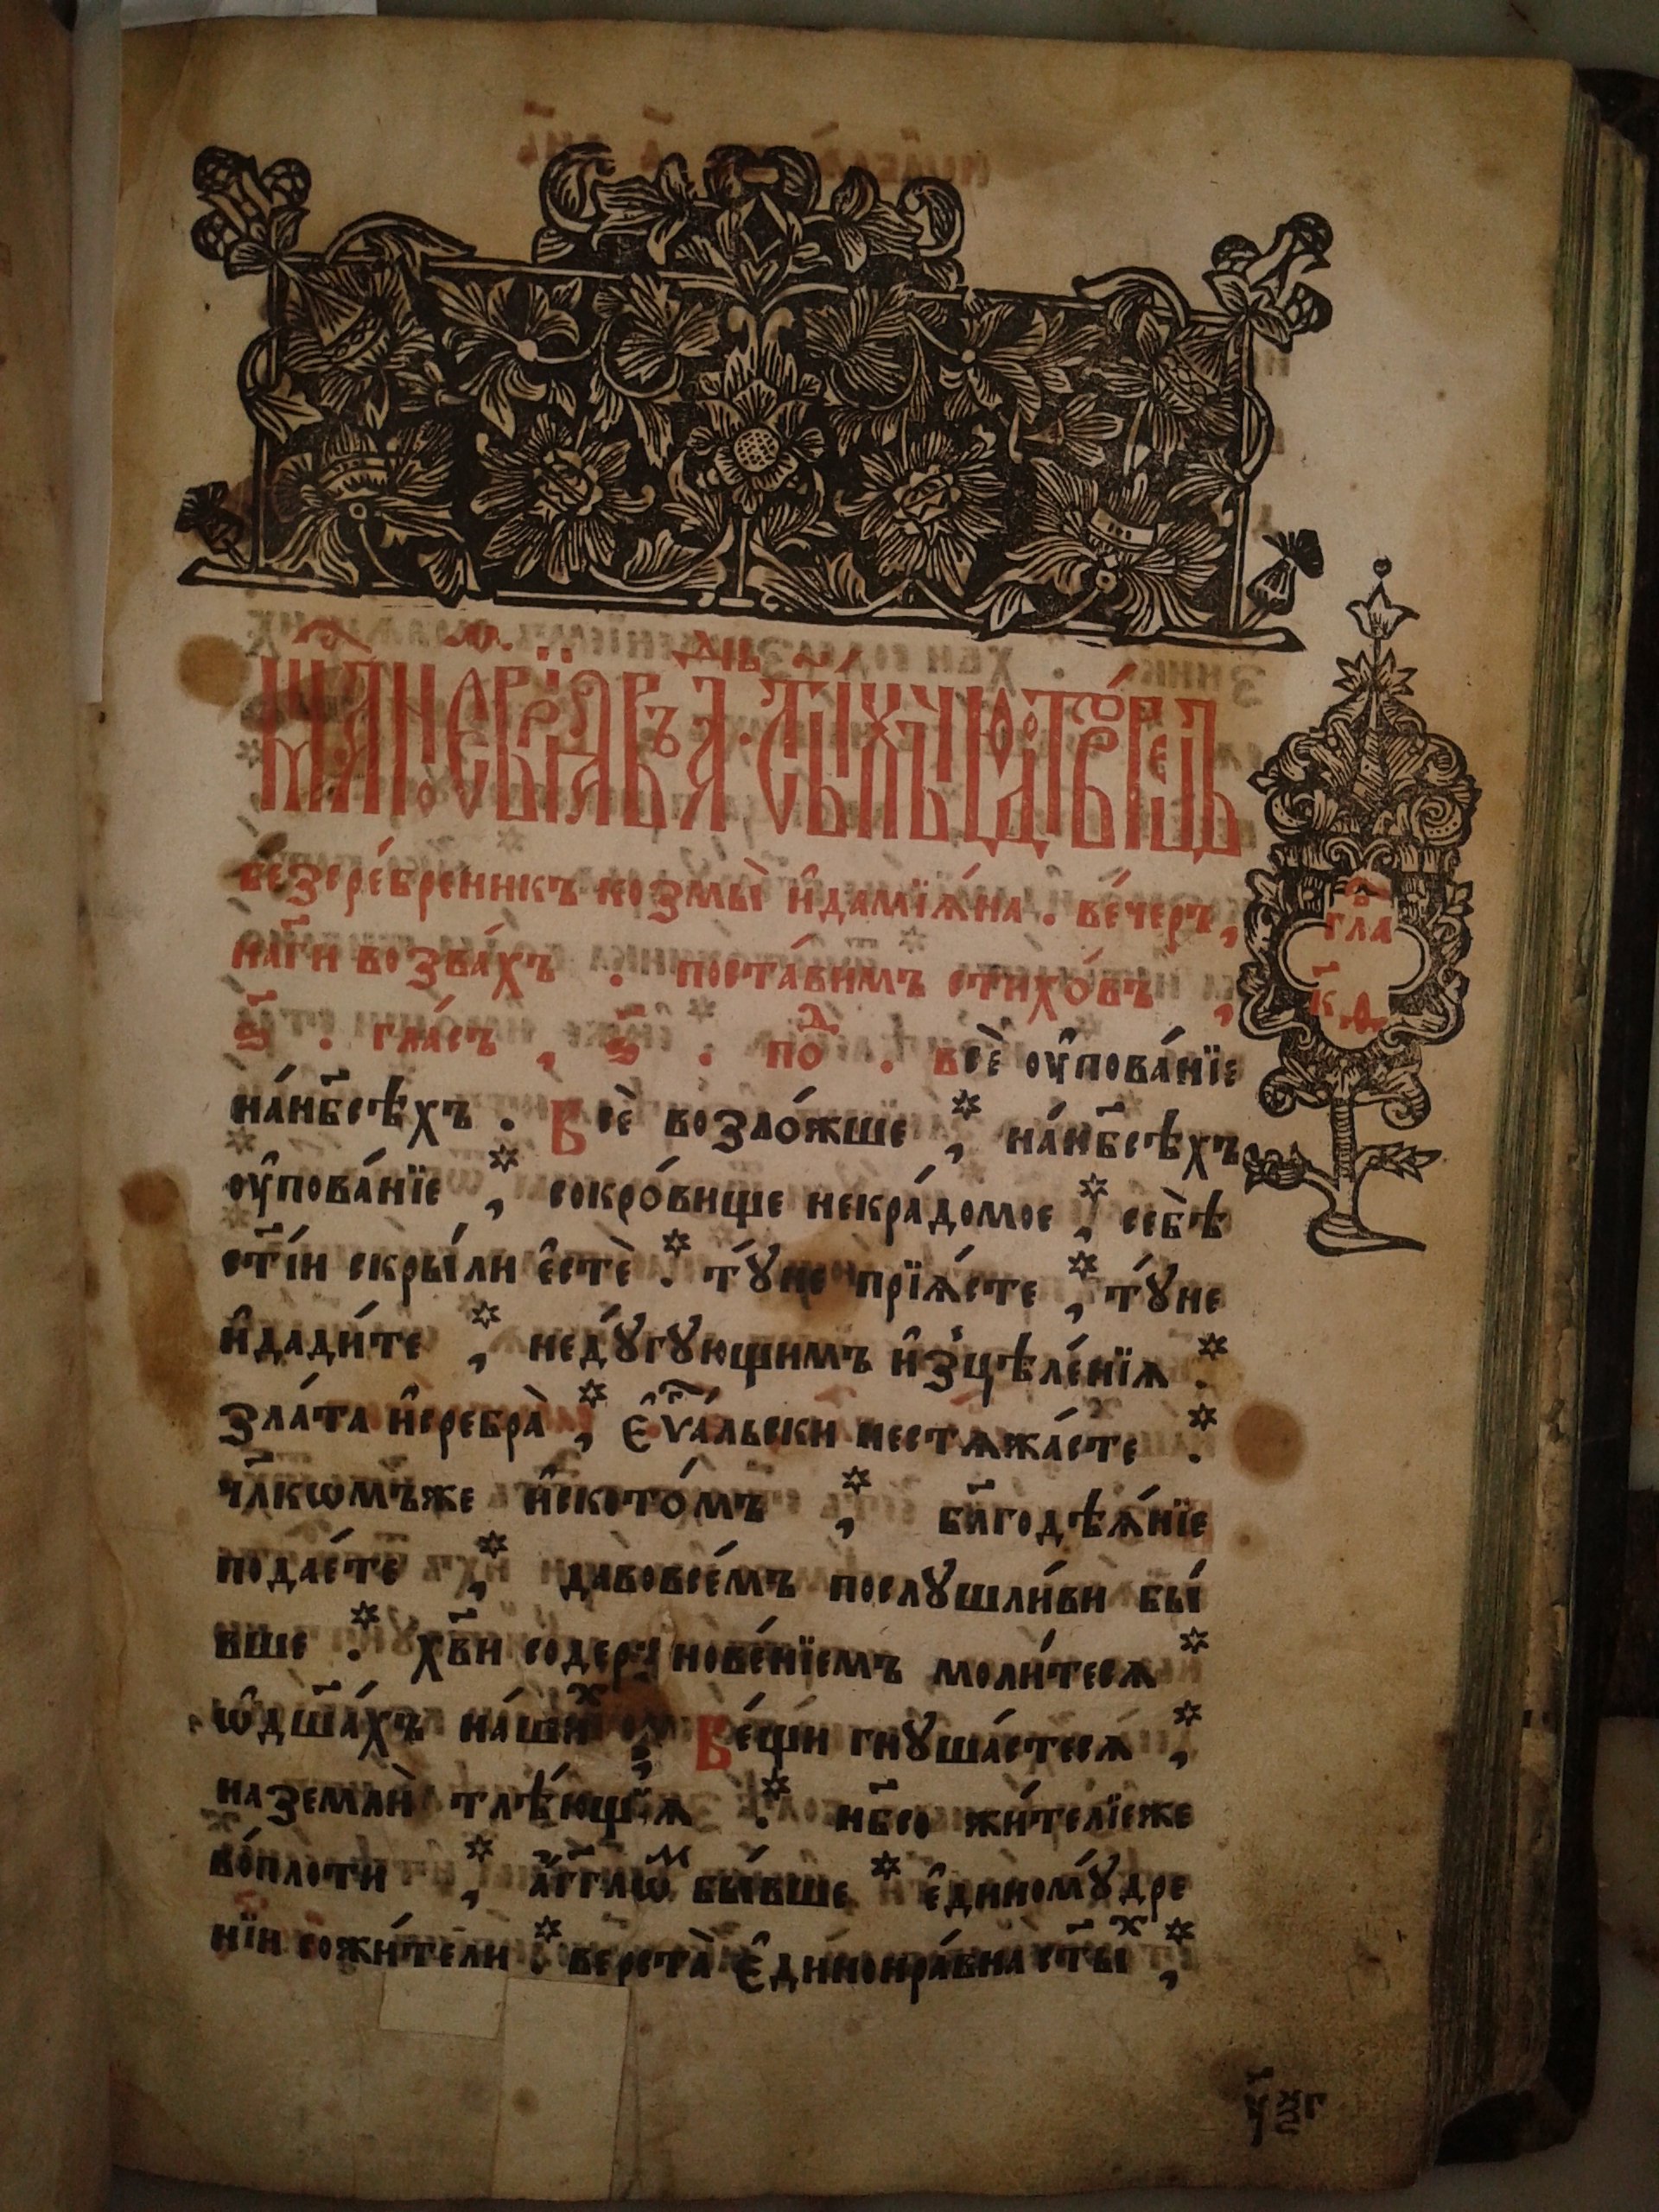 Мц҃а ноѧбрїѧ въ а҃ дн҃ь. ст҃ы́хъ чюⷣотво́рєцъ
безсре́бреникъ козмы̀ и҆дамїѧ́на . ве́черъ,
на гд҃и возва́хъ . поста́вимъ стихо́въ ,
ѕ҃ . гла́съ , ѕ҃ . поⷣ . все̏ оу҆пова́нїе
на́нб҃сѣхъ . Все̏ возло́жше , на́нб҃сѣхъ
оу҆пова́нїе , сокро́вище некра́домое , себѣ̀
ст҃і́и скры́ли є҆стѐ . тꙋ́не прїѧ́сте , тꙋ́не
и҆дади́те , недꙋ́гꙋющимъ и҆зцѣле́нїѧ .
зла́та и҆сребра̀ , є҆ѵⷢ҇а́льски нестѧжа́сте .
чл҃кѡмъже и҆ското́мъ , бл҃годѣѧ́нїе
подае́те , давовсе́мъ послꙋшли́ви бы́
вше . хв҃и содерзнове́нїемъ моли́тесѧ
ѡ҆дш҃а́хъ на́шиⷯ , Ве́щи гнꙋша́етесѧ ,
наземлѝ тлѣ́ющїѧ . нб҃со жи́телїеже
во́плоти , а҆́гг҃лѡⷨ бы́вше є҆диномꙋ́дре
нїи сожи́тели . верста̀ є҆динонра́вна ст҃ыⷯ ,
гла
к҃ѳ
у҃ѯг